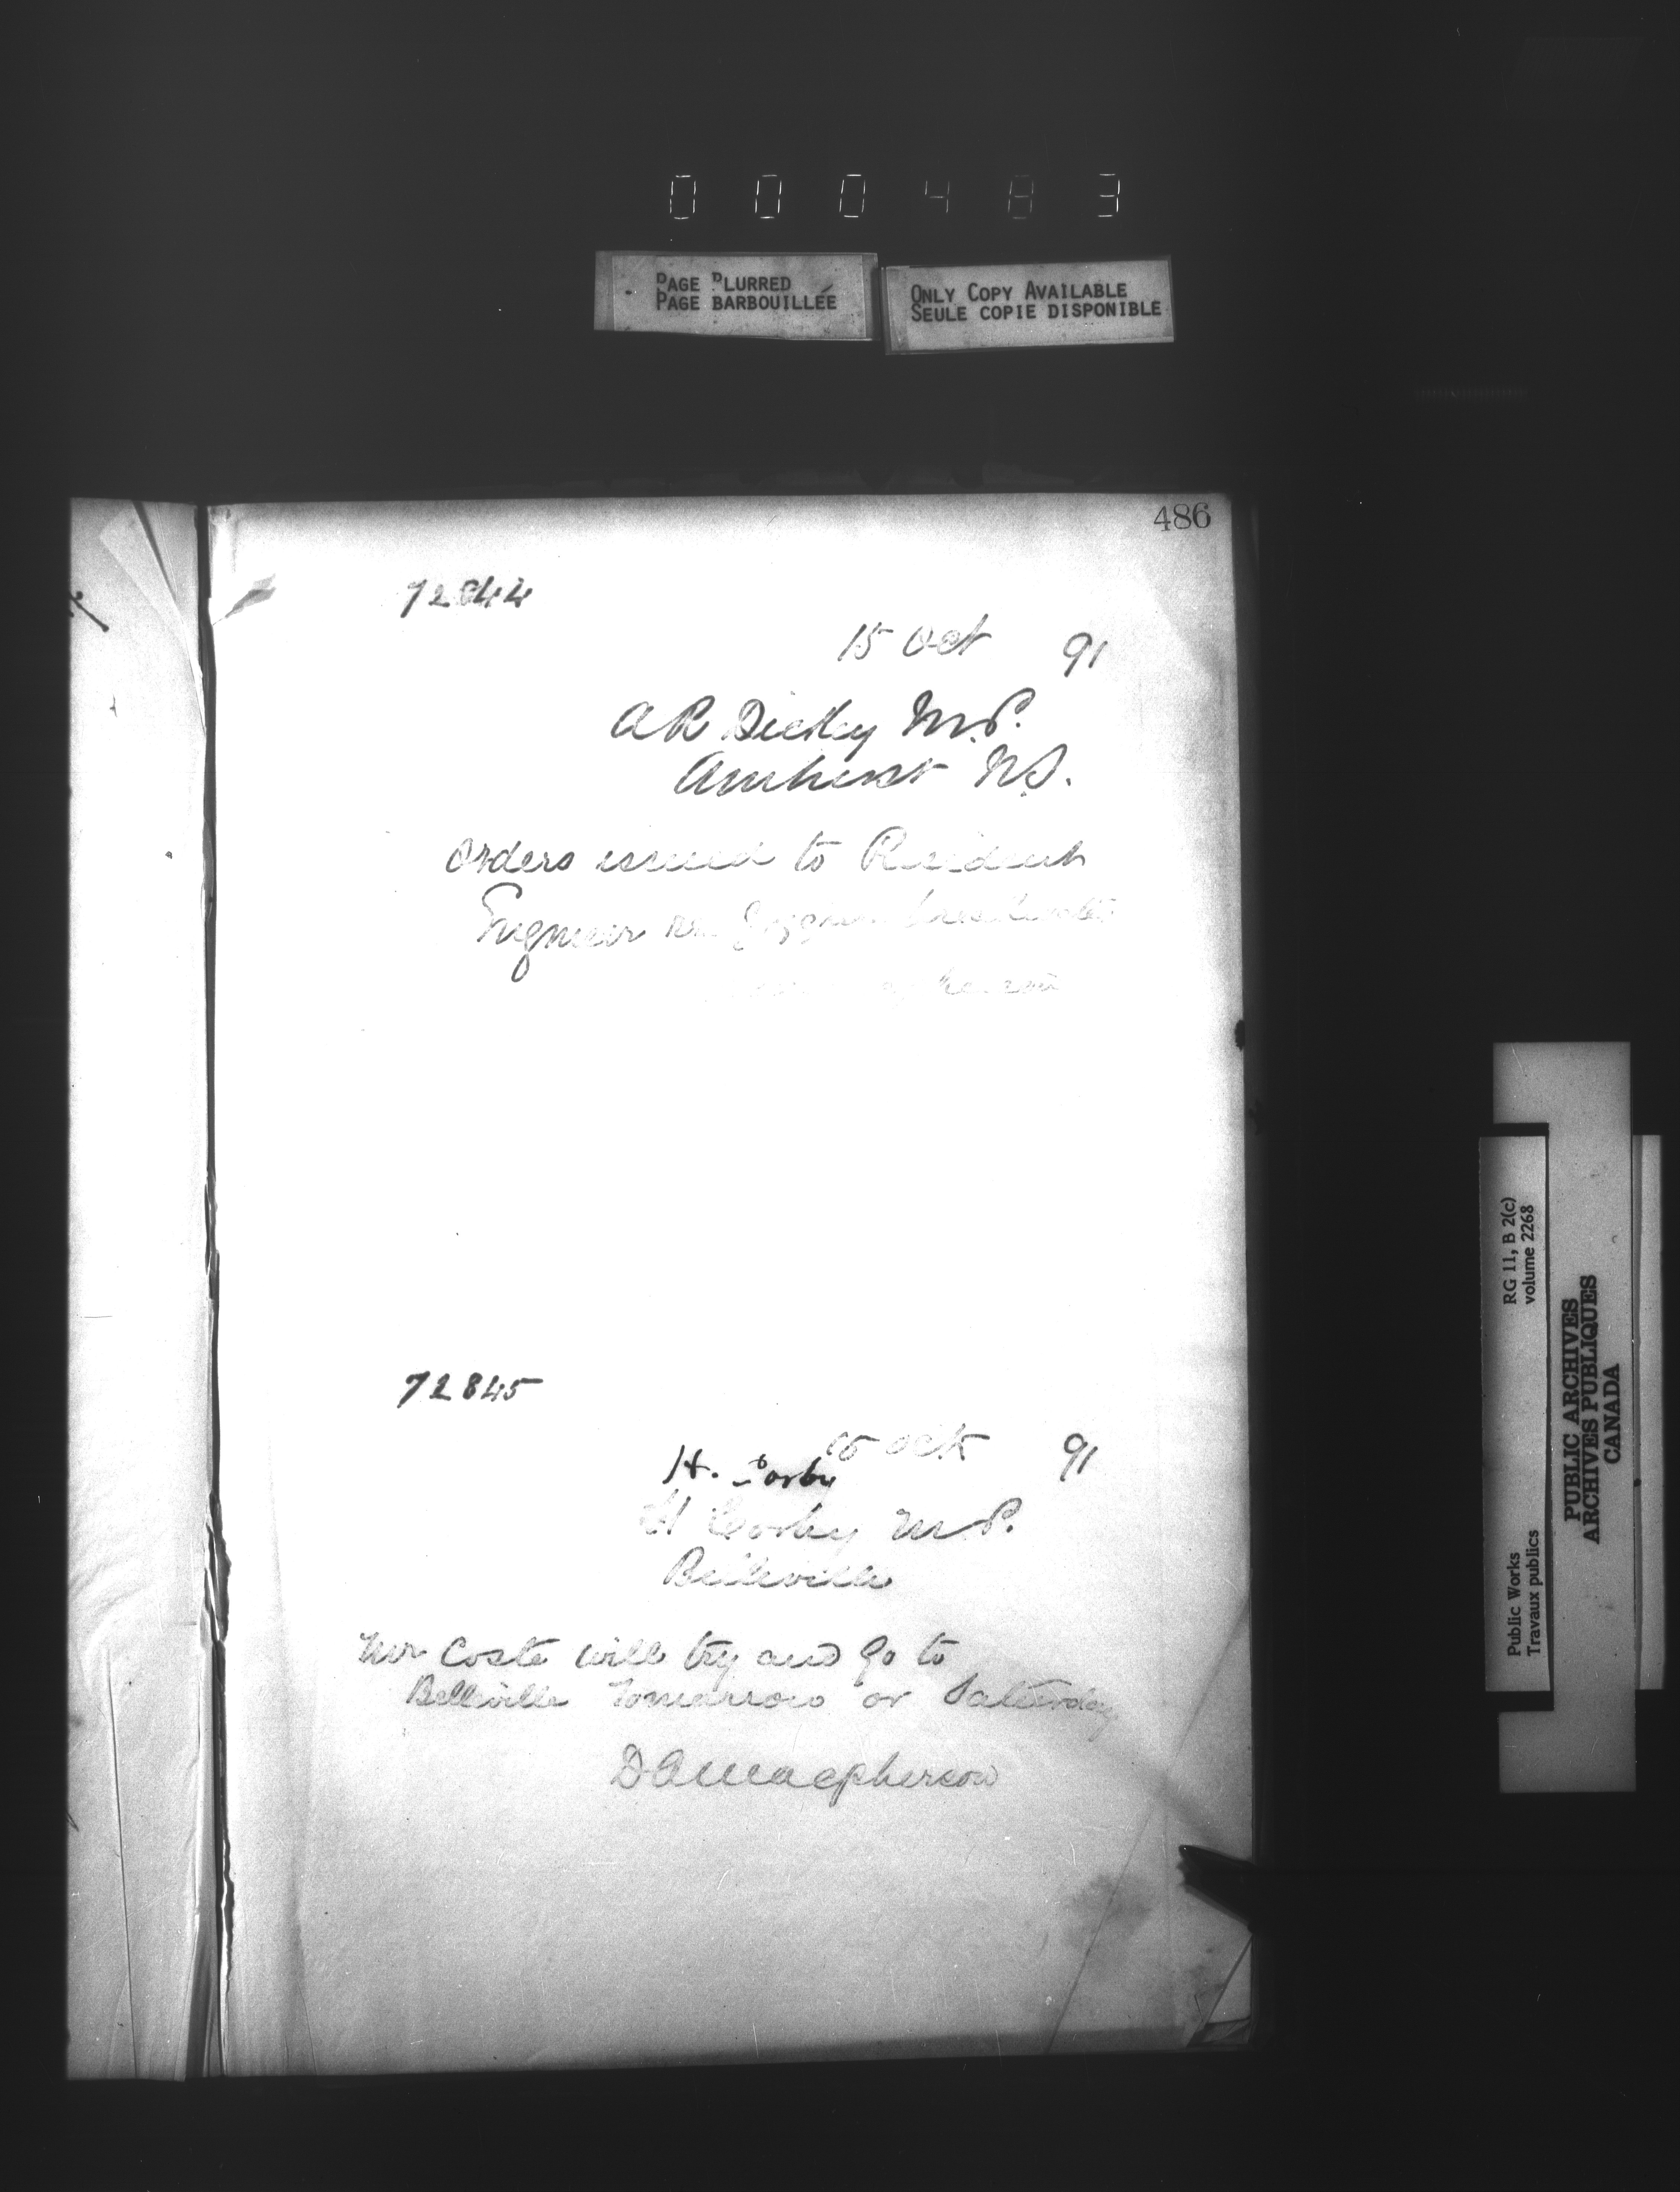 000483
PAGE BLURRED
PAGE BARBOUILLÉE
ONLY COPY AVAILABLE
SEULE COPIE DISPONIBLE
486
72844
15 Oct 91
A R Dickey M.P.
Amherst N.S.
Orders issued to Resident
Engineer re
72845
15 Oct 91
H. Corby
H Corby M.P.
Belleville
Mr Coste will try and go to
Belleville Tomorrow or Saturday
D A Macpherson
RG 11, B 2(c)
volume 2268
Public Works
Travaux publics
PUBLIC ARCHIVES
ARCHIVES PUBLIQUES
CANADA